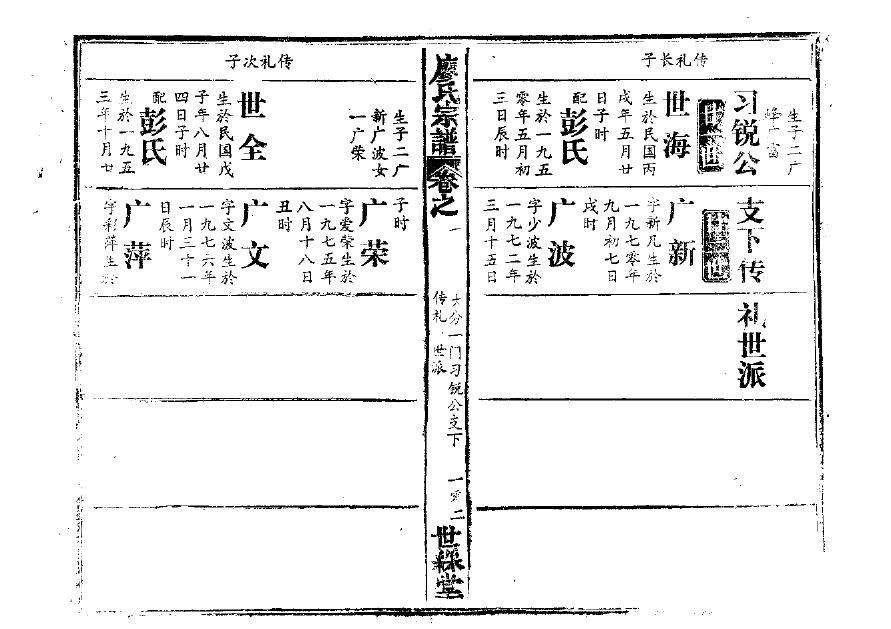 传礼长子
习锐公
支下传
礼世派
生子二广
世海
生於民国丙
戌年五月廿
日子时
配
彭氏
生於一九五
零年五月初
三日辰时
广新
字新凡生於
一九七零年
九月初七日
戌时
广波
字少波生於
一九七二年
三月十五日
廖氏宗譜
卷之一
大分一门习锐公支下
传礼
世派
一零二
世綵堂
传礼次子
生子二广
新广波女
一广荣
世全
生於民国戊
子年八月廿
四日子时
配
彭氏
生於一九五
三年十月廿
子时
广荣
字爱荣生於
一九七五年
八月十八日
丑时
广文
字文波生於
一九七六年
一月三十一
日辰时
广萍
字彩萍生於